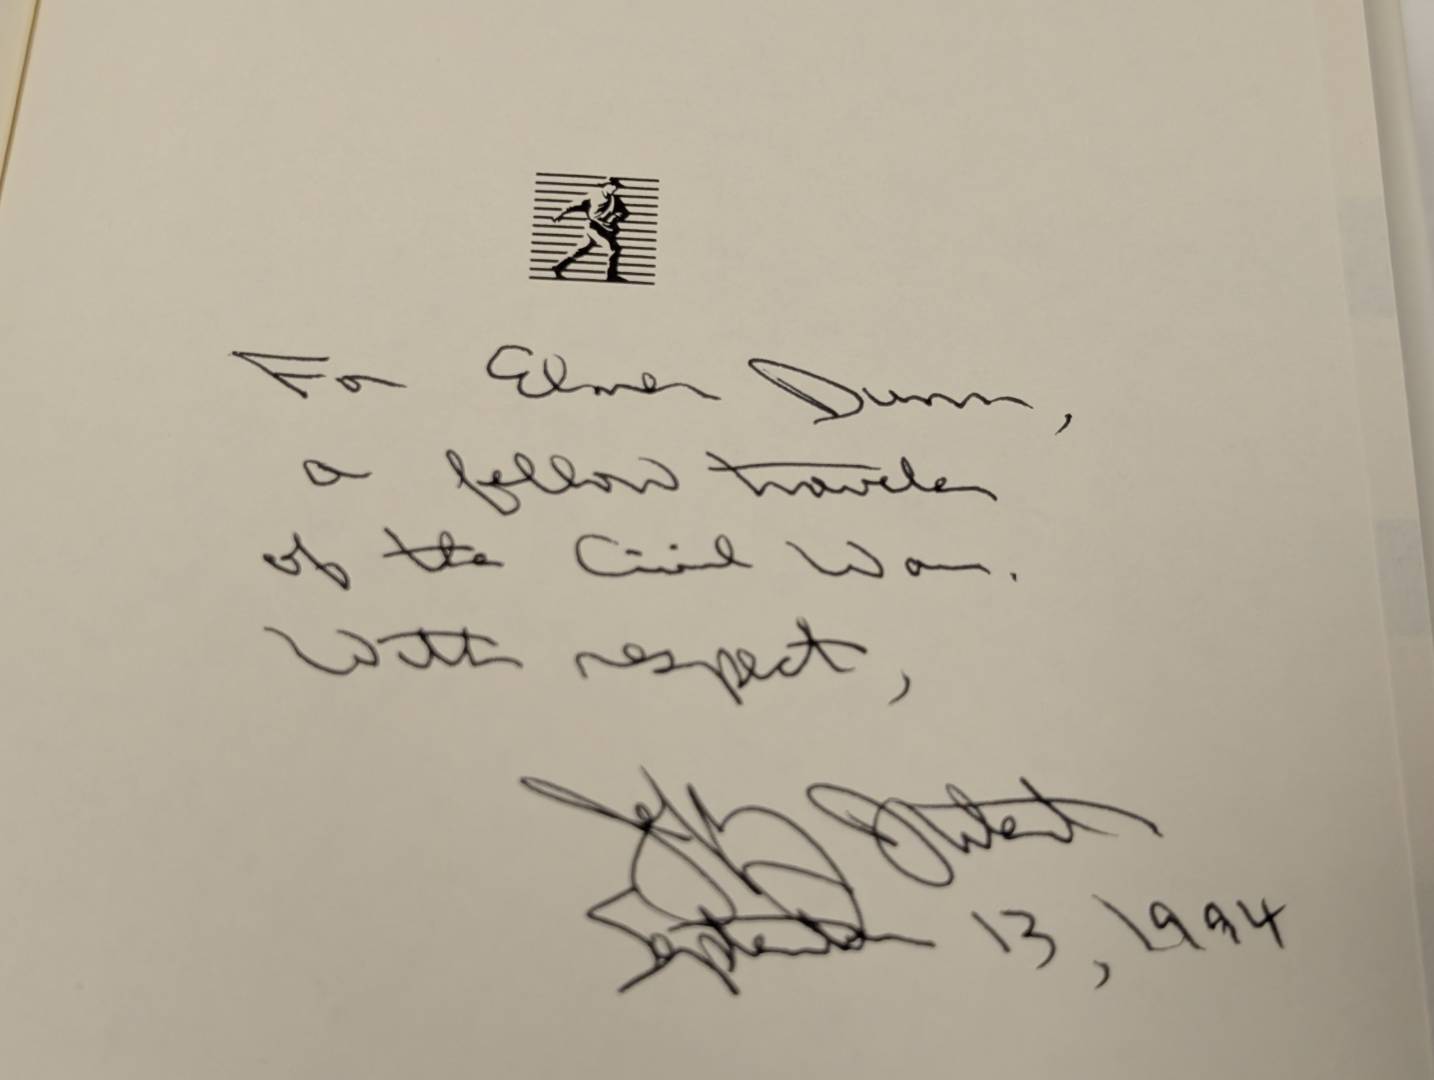 For Elmer Dunn,
a fellow traveler
of the Civil War.
With respect,
Jeffry
September 13, 1994